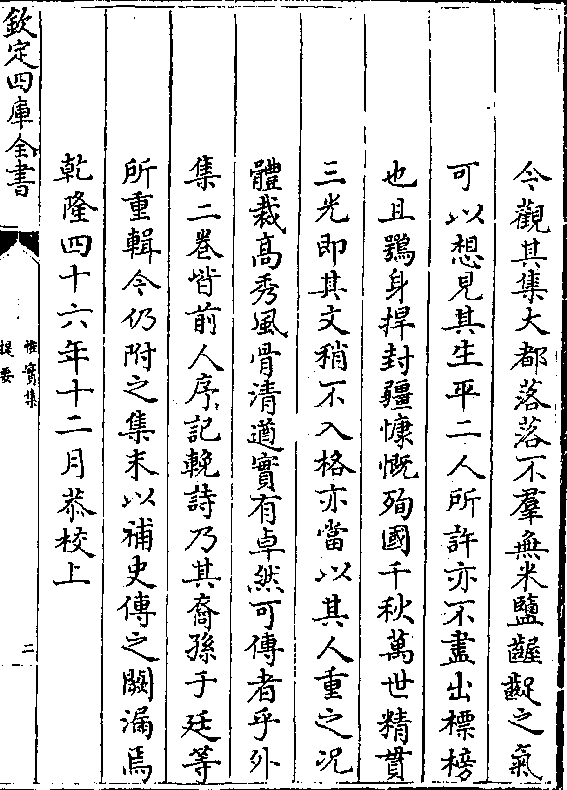 今觀其集大都落落不羣無米鹽齷齪之氣
可以想見其生平二人所許亦不盡出標榜
也且鶚身捍封疆慷慨殉國千秋萬世精貫
三光即其文稍不入格亦當以其人重之况
體裁高秀風骨清遒實有卓然可傳者乎外
集二巻皆前人序記輓詩乃其裔孫于廷等
所重輯今仍附之集末以補史傳之闕漏焉
乾隆四十六年十二月恭校上
欽定四庫全書
惟實集
提要
二